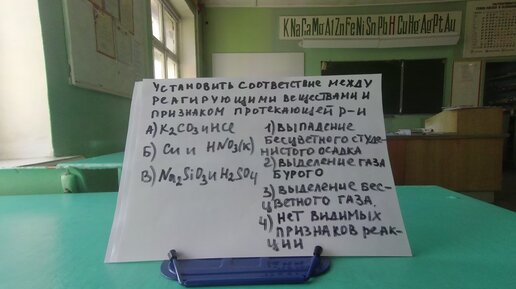 K Na Ca Mg Al Zn Fe Ni Sn Pb H Cu Hg Ag Pt Au
УСТАНОВИТЬ СООТВЕТСТВИЕ МЕЖДУ
РЕАГИРУЮЩИМИ ВЕЩЕСТВАМИ И
ПРИЗНАКОМ ПРОТЕКАЮЩЕЙ Р-И
А) K2CO3 и HCl
Б) Cu и HNO3(К)
В) Na2SiO3 и H2SO4
1) ВЫПАДЕНИЕ
БЕСЦВЕТНОГО СТУДЕ-
НИСТОГО ОСАДКА
2) ВЫДЕЛЕНИЕ ГАЗА
БУРОГО
3) ВЫДЕЛЕНИЕ БЕС-
ЦВЕТНОГО ГАЗА.
4) НЕТ ВИДИМЫХ
ПРИЗНАКОВ РЕАК-
ЦИИ